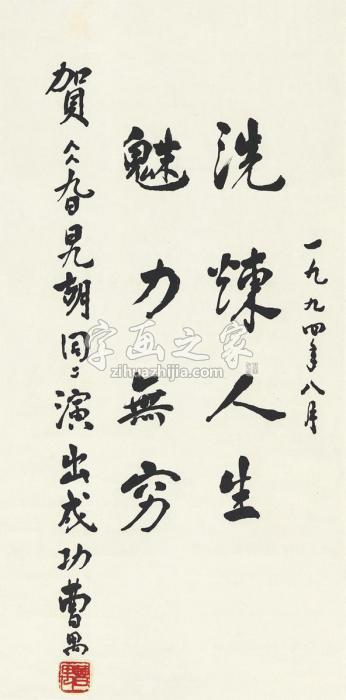 一九九四年八月
洗煉人生
魅力無穷
賀《旮旯胡同》演出成功 曹禺
字画之家
zihuazhijia.com